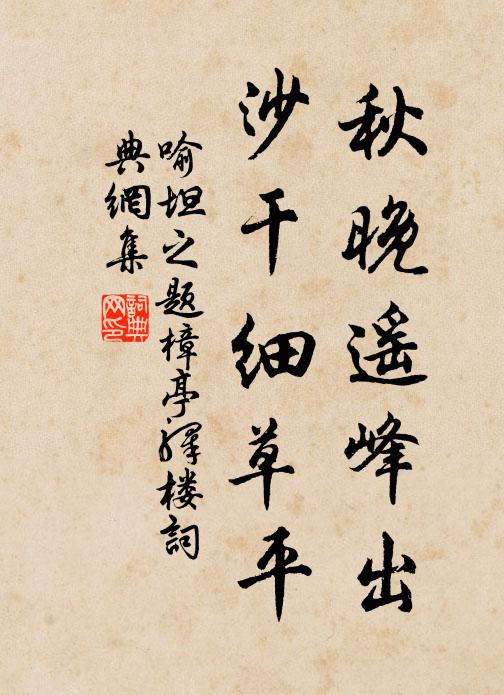 秋晚遥峰出
沙干细草平
喻坦之题樟亭驿楼词
典網集
詞典網印